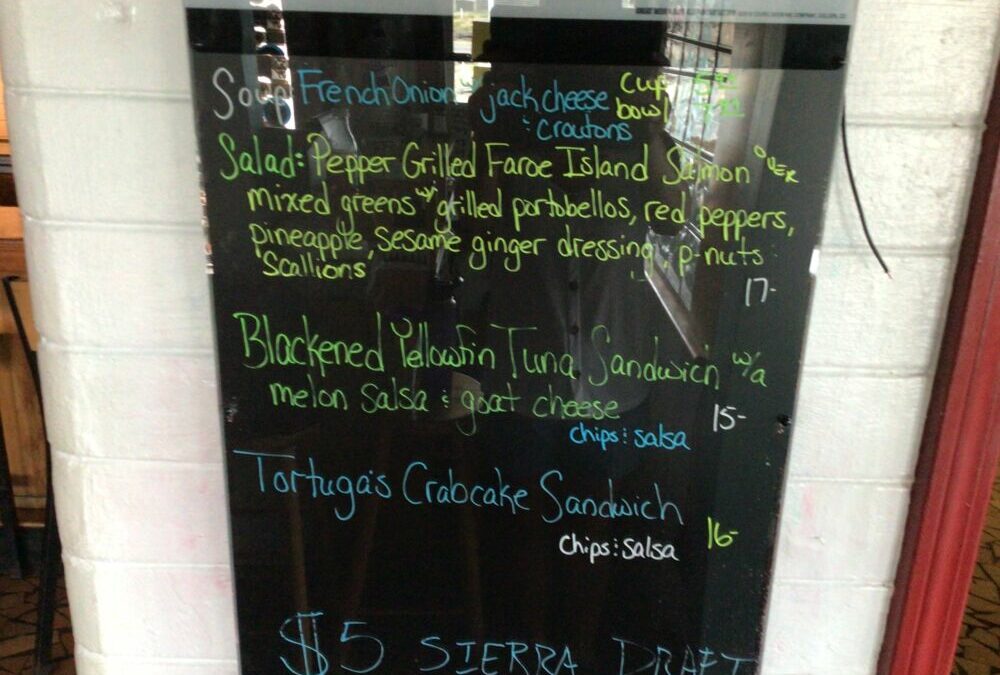 Soup French Onion jack cheese cup
& croutons bowl
Salad: Pepper Grilled Faroe Island Salmon over
mixed greens w/ grilled portobellos, red peppers,
pineapple, sesame ginger dressing, p-nuts
Scallions
17-
Blackened Yellowfin Tuna Sandwich w/a
melon salsa & goat cheese
15-
chips & salsa
Tortuga's Crabcake Sandwich
16-
chips & salsa
$5 SIERRA DRAFT